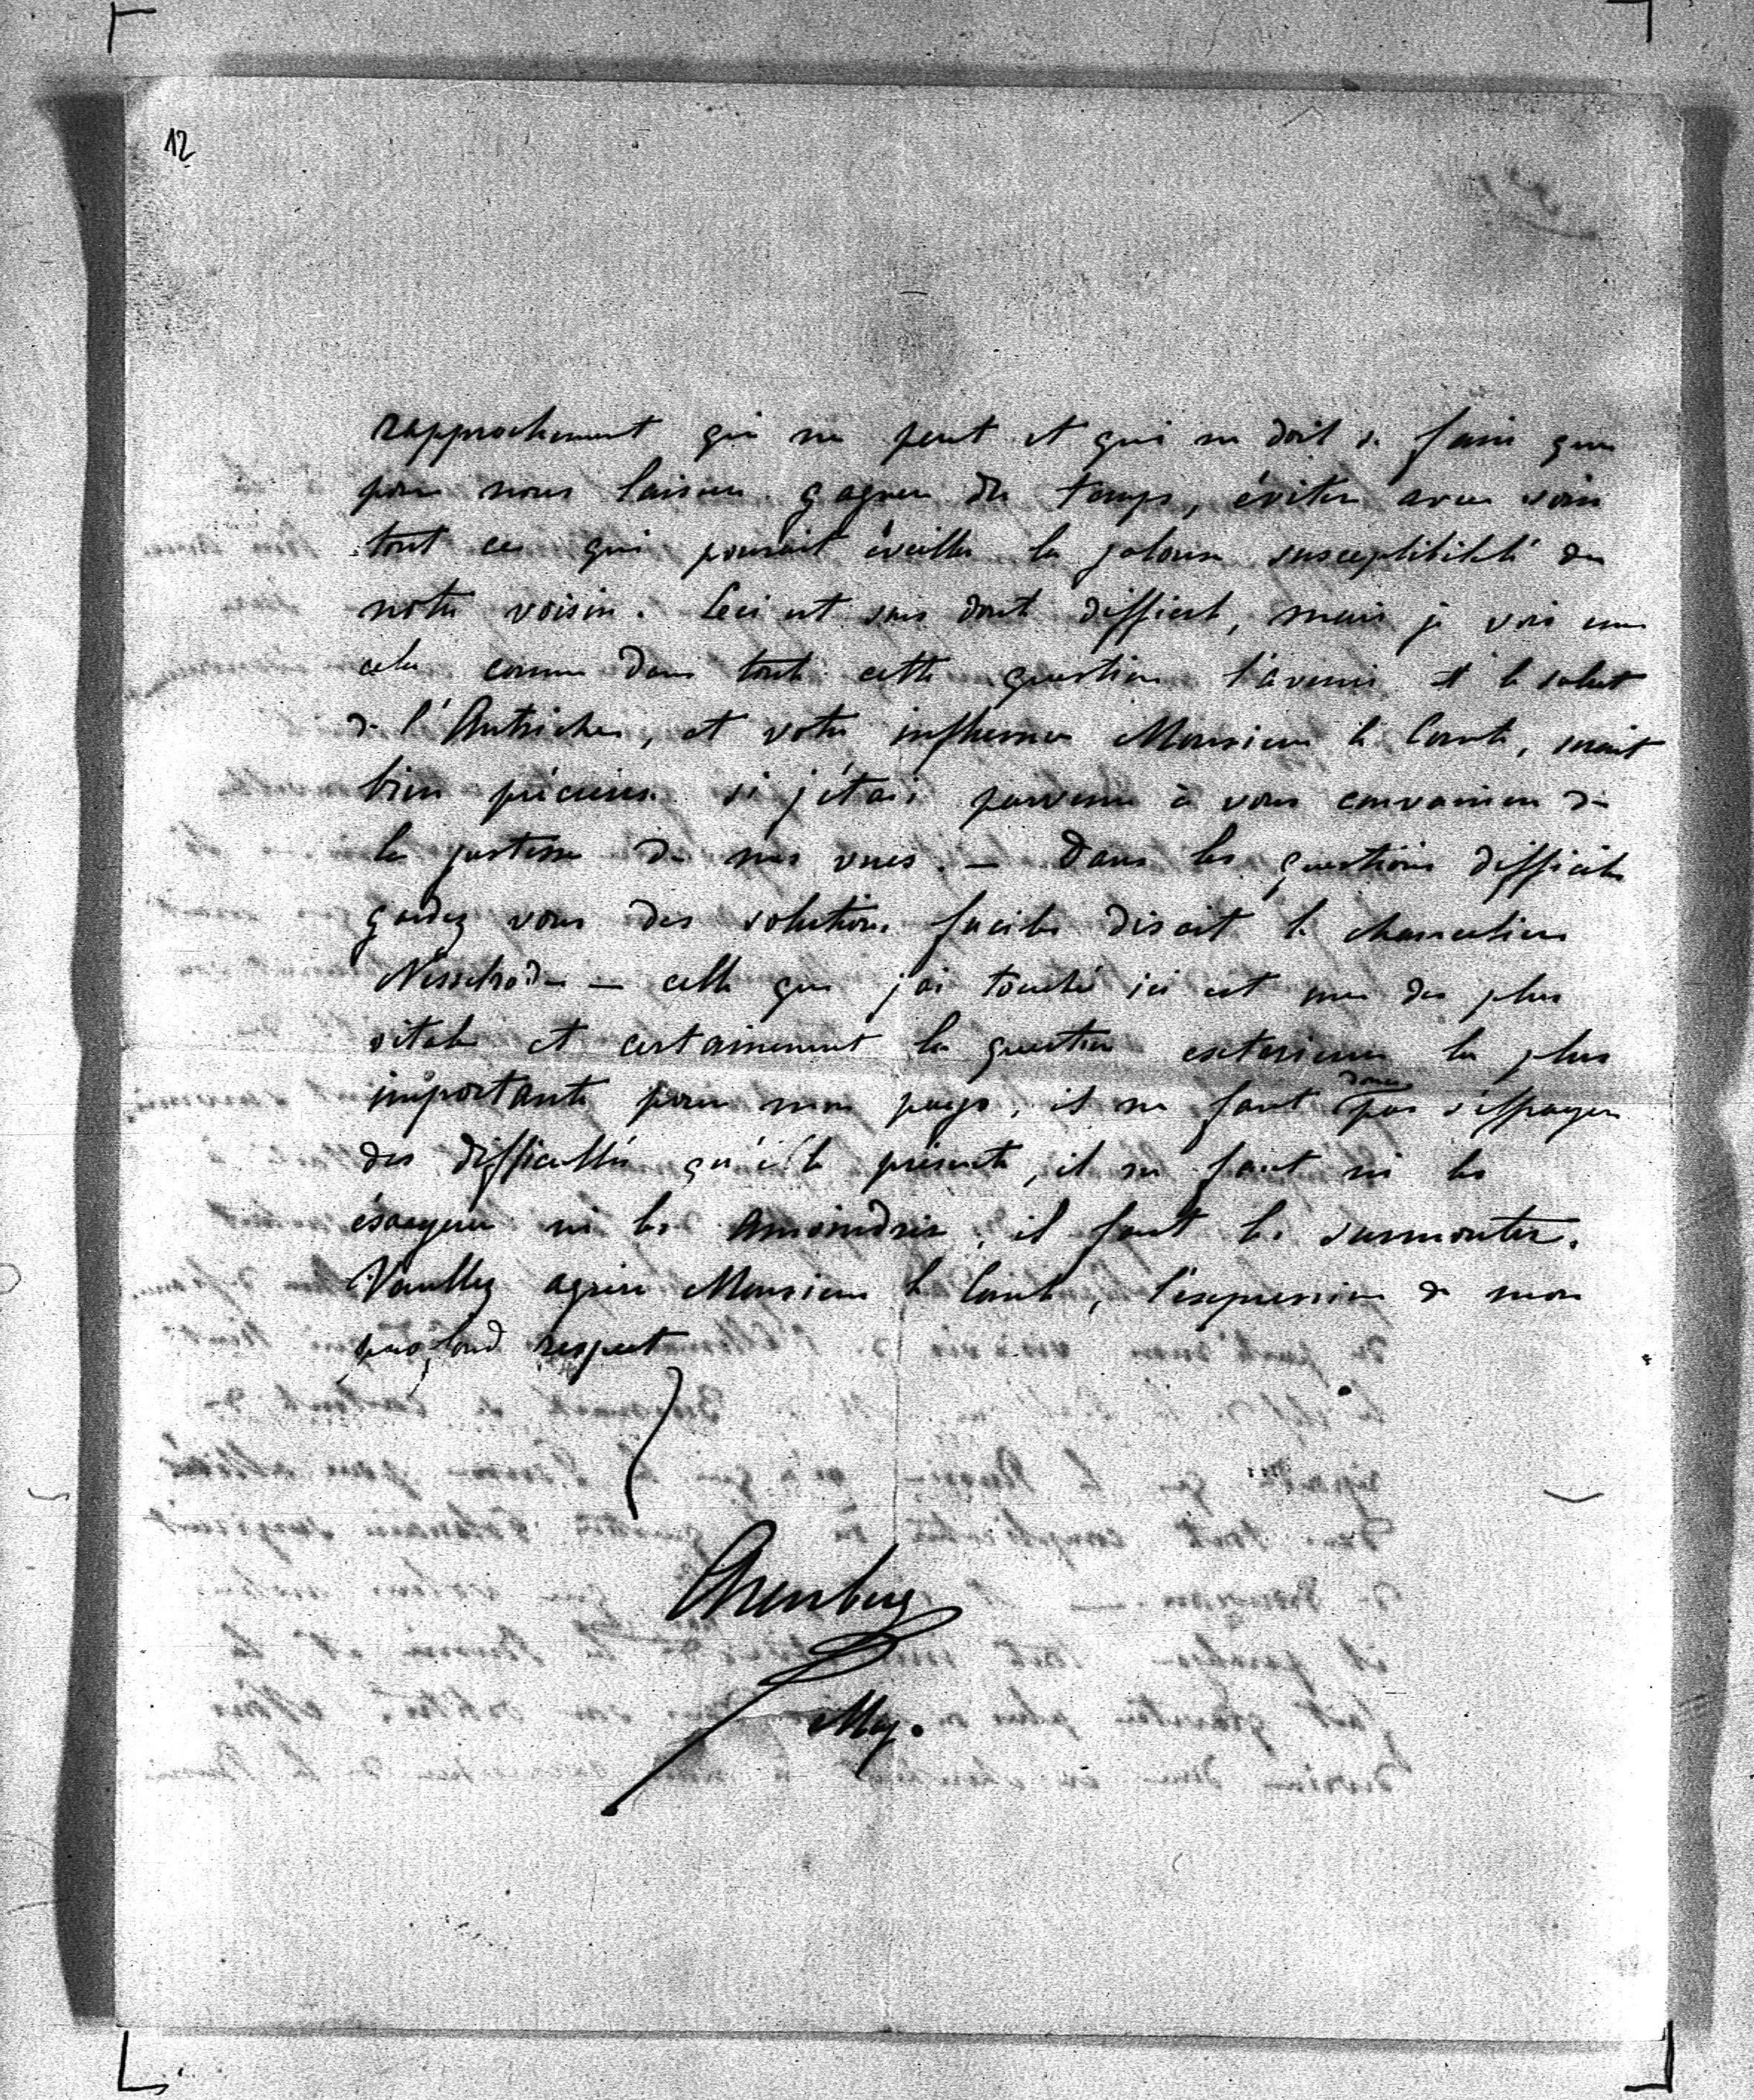 12
rapprochement qui ne peut et qui ne doit se faire que
pour nous laisser gagner du temps, éviter avec soin
tout ce qui pourait éveiller la jalouse susceptibilité de
notre voisin. Ceci est sans doute difficile, mais je vois en
cela comme dans toute cette question l'avenir et le salut
de l'Autriche, et votre influence Monsieur le Comte, serait
bien précieuse si j'étais parvenu à vous convaincre de
la justesse de mes vues. — Dans les questions difficiles
gardez vous des solutions faciles disait le chancelier
Nesselrode — celle que j'ai touché ici est une des plus
vitale et certainement la question exterieure la plus
importante pour mon pays, il ne faut donc pas s'effrayer
des difficultés qu'elle présente, il ne faut ni les
éxagerer ni les amoindrir, il faut les surmonter.
Veuillez agréer Monsieur le Comte, l'expression de mon
profond respect
Maj.